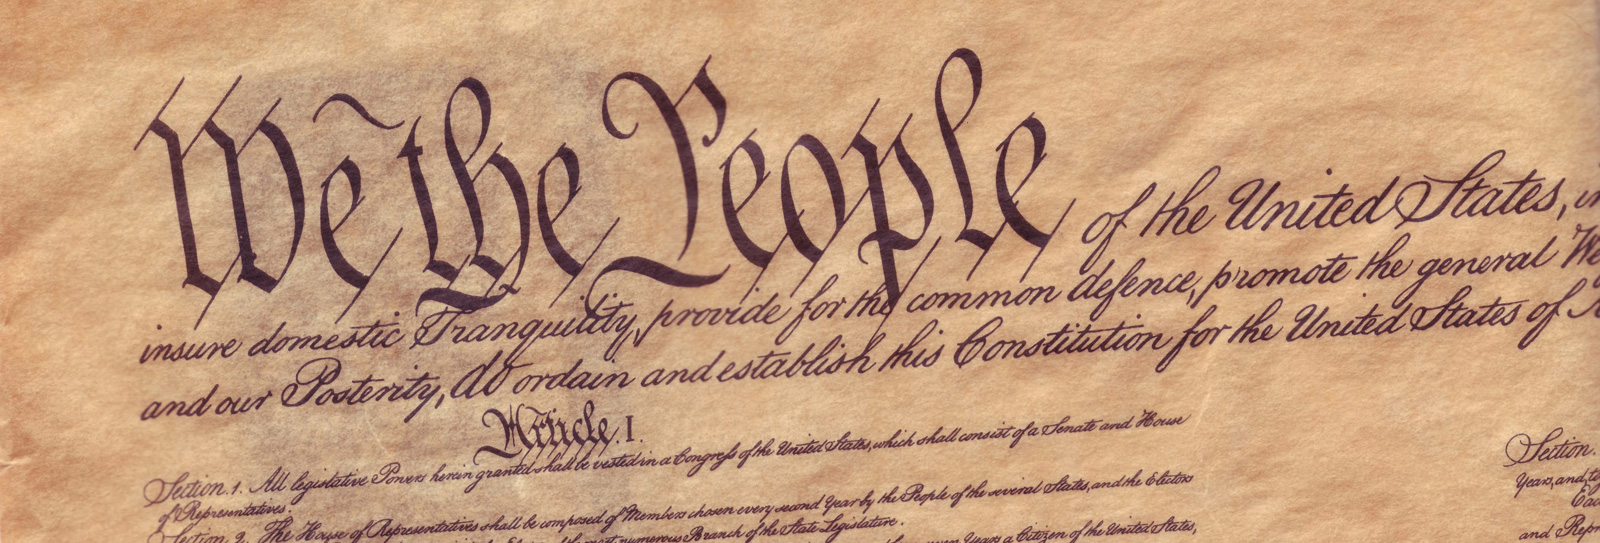 We the People of the United States,
insure domestic Tranquility, provide for the common defence, promote the general We
and our Posterity, do ordain and establish this Constitution for the United States of A
Article. I.
Section. 1. All legislative Powers herein granted shall be vested in a Congress of the United States, which shall consist of a Senate and House
of Representatives.
Section. 2. The House of Representatives shall be composed of Members chosen every second Year by the People of the several States, and the Electors
numerous Branch of the State Legislature.
Years a Citizen of the United States,
Section.
Years, and
and Repr